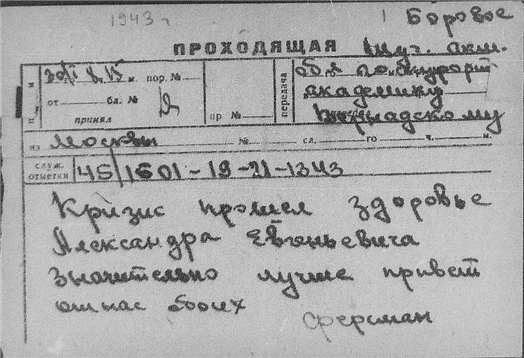 1943 г
1 Боровое
ПРОХОДЯЩАЯ
Акм.
30/I 8 15 м. пор. №
обл курорт
от бл. №
академику
принял
пр №
передача
Вернадскому
из Москвы № сл. го ч. м
служ. отметки
45/1601-19-21-1343
Кризис прошел здоровье
Александра Евгеньевича
значительно лучше привет
от нас обоих
Ферсман